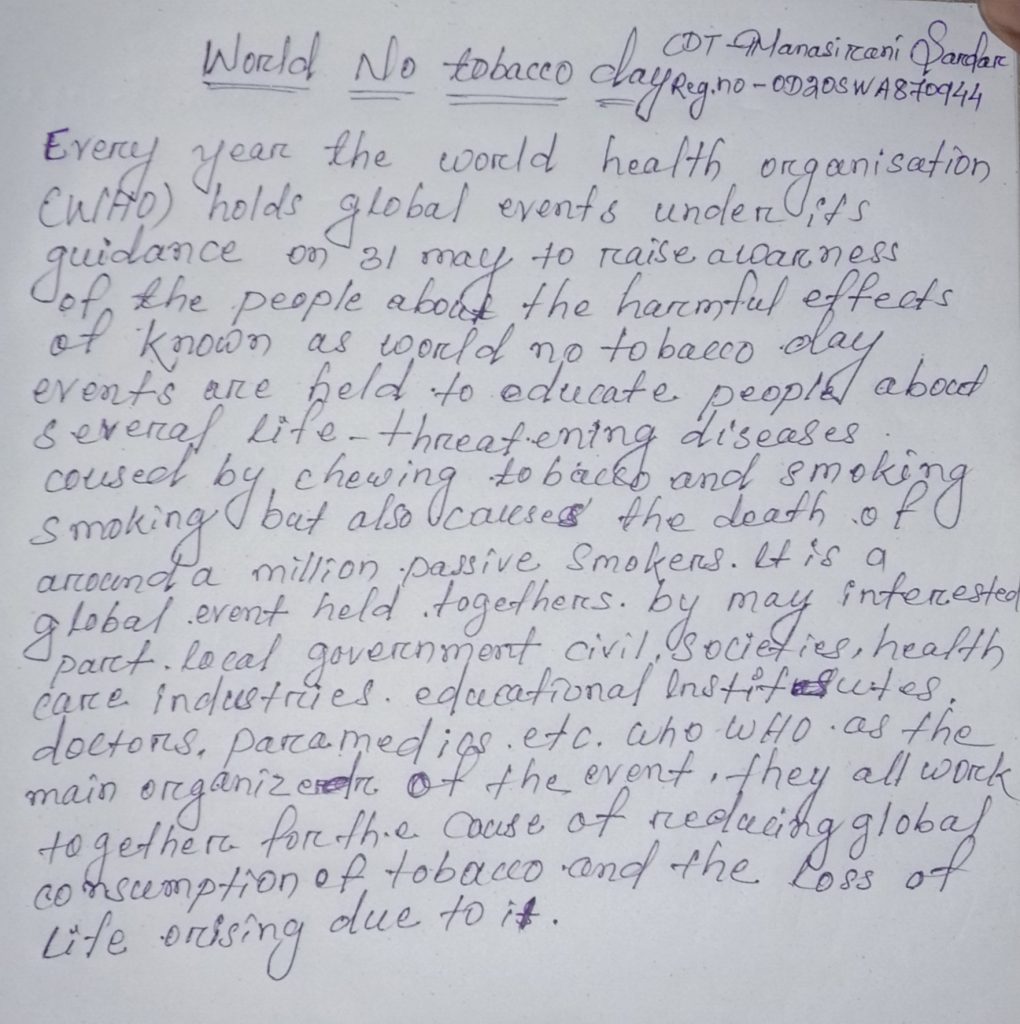 World No tobacco day
CDT - Manasirani Sardar
Reg.no - OD20SWA870944
Every year the world health organisation
(WHO) holds global events under its
guidance on 31 may to raise awarness
of the people about the harmful effects
of known as world no tobacco day
events are held to educate people about
several life-threatening diseases.
coused by chewing tobacco and smoking
smoking but also causes the death of
around a million passive smokers. It is a
global event held togethers. by may interested
part. local government civil, societies, health
care industries. educational Institutes.
doctors, paramedics. etc. who WHO. as the
main organizer of the event, they all work
together for the cause of reducing global
consumption of tobacco and the loss of
life orising due to it.